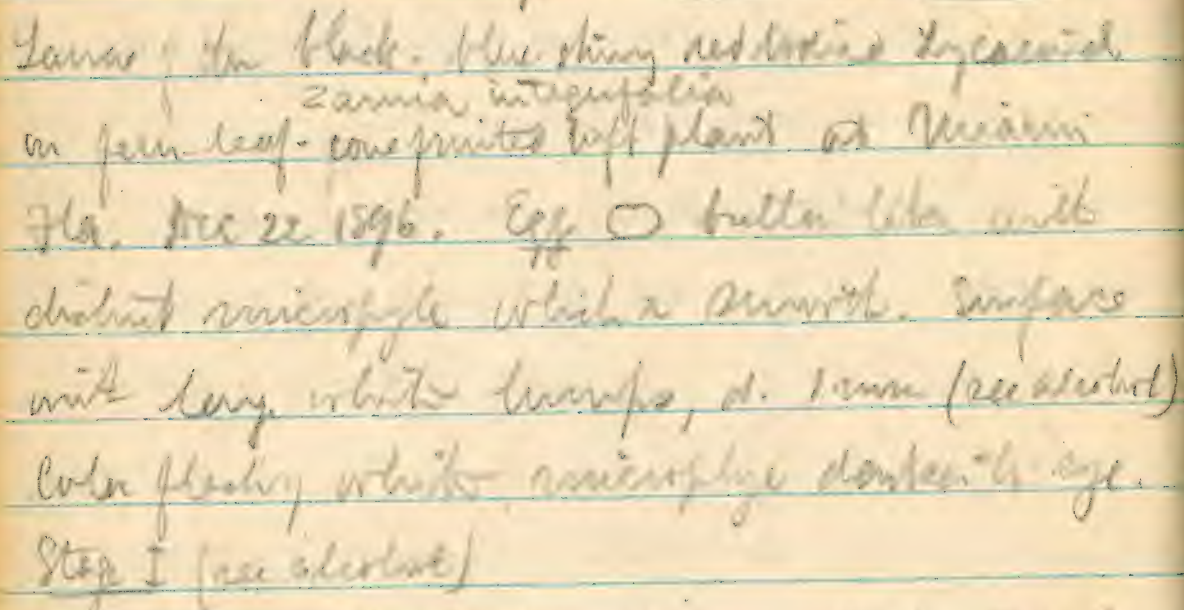 Larva of the black-blue shiny red bodied Lycaenid
Zamia integrifolia
on fern-leaf-cone fruited plant at Miami
Fla. Dec 22 1896. Egg button like with
distinct micropyle which is smooth. Surface
with long white lumps, d. 1 mm (see alcohol)
Color fleshy white, micropyle darker
Stage I (see alcohol)